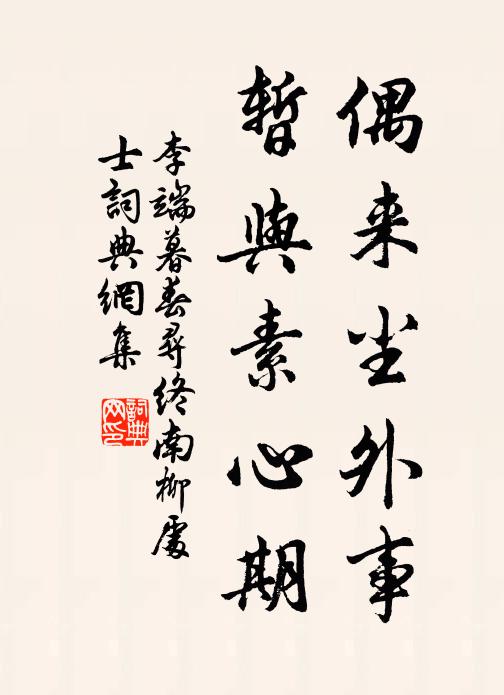 偶来尘外事
暫與素心期
李端暮春尋終南柳處
士詞典網集
詞典
网印